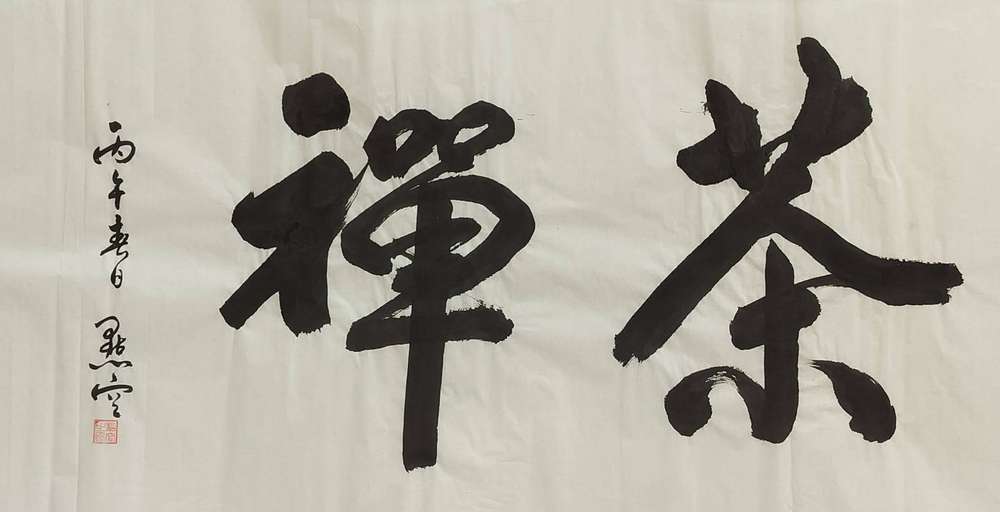 茶禪
丙午春日 點空